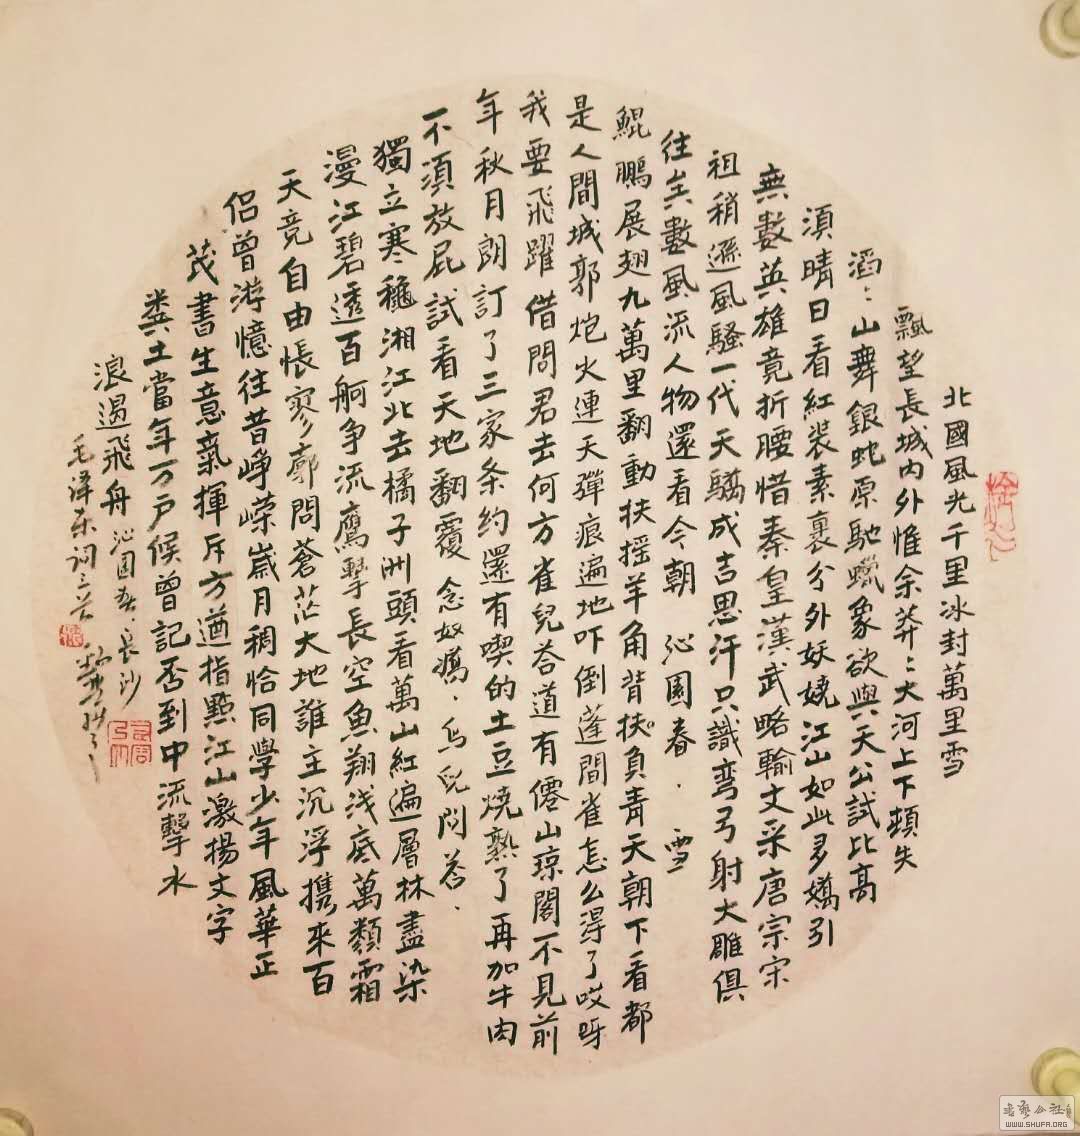 北國風光千里冰封萬里雪
飄望長城内外惟余莽〻大河上下頓失
滔〻山舞銀蛇原馳蠟象欲與天公試比高
須晴日看紅裝素裹分外妖嬈江山如此多嬌引
無數英雄竟折腰惜秦皇漢武略輸文采唐宗宋
祖稍遜風騷一代天驕成吉思汗只識彎弓射大雕俱
往矣數風流人物還看今朝 沁園春.雪
鯤鵬展翅九萬里翻動扶摇羊角背扶負青天朝下看都
是人間城郭炮火連天彈痕遍地吓倒蓬間雀怎么得了哎呀
我要飛躍借問君去何方雀兒答道有僊山琼閣不見前
年秋月朗訂了三家条約還有喫的土豆燒熟了再加牛肉
不須放屁試看天地翻覆 念奴嬌.鸟兒问荅.
獨立寒穐湘江北去橘子洲頭看萬山紅遍層林盡染
漫江碧透百舸争流鷹擊長空魚翔浅底萬類霜
天竞自由悵寥廓問蒼茫大地誰主沉浮携來百
侣曾游憶往昔峥嵘崴月稠恰同學少年風華正
茂書生意氣揮斥方遒指點江山激揚文字
粪土當年万户候曾記否到中流擊水
浪遏飛舟 沁园春.長沙
毛泽东词三首
书艺公社
WWW.SHUFA.ORG